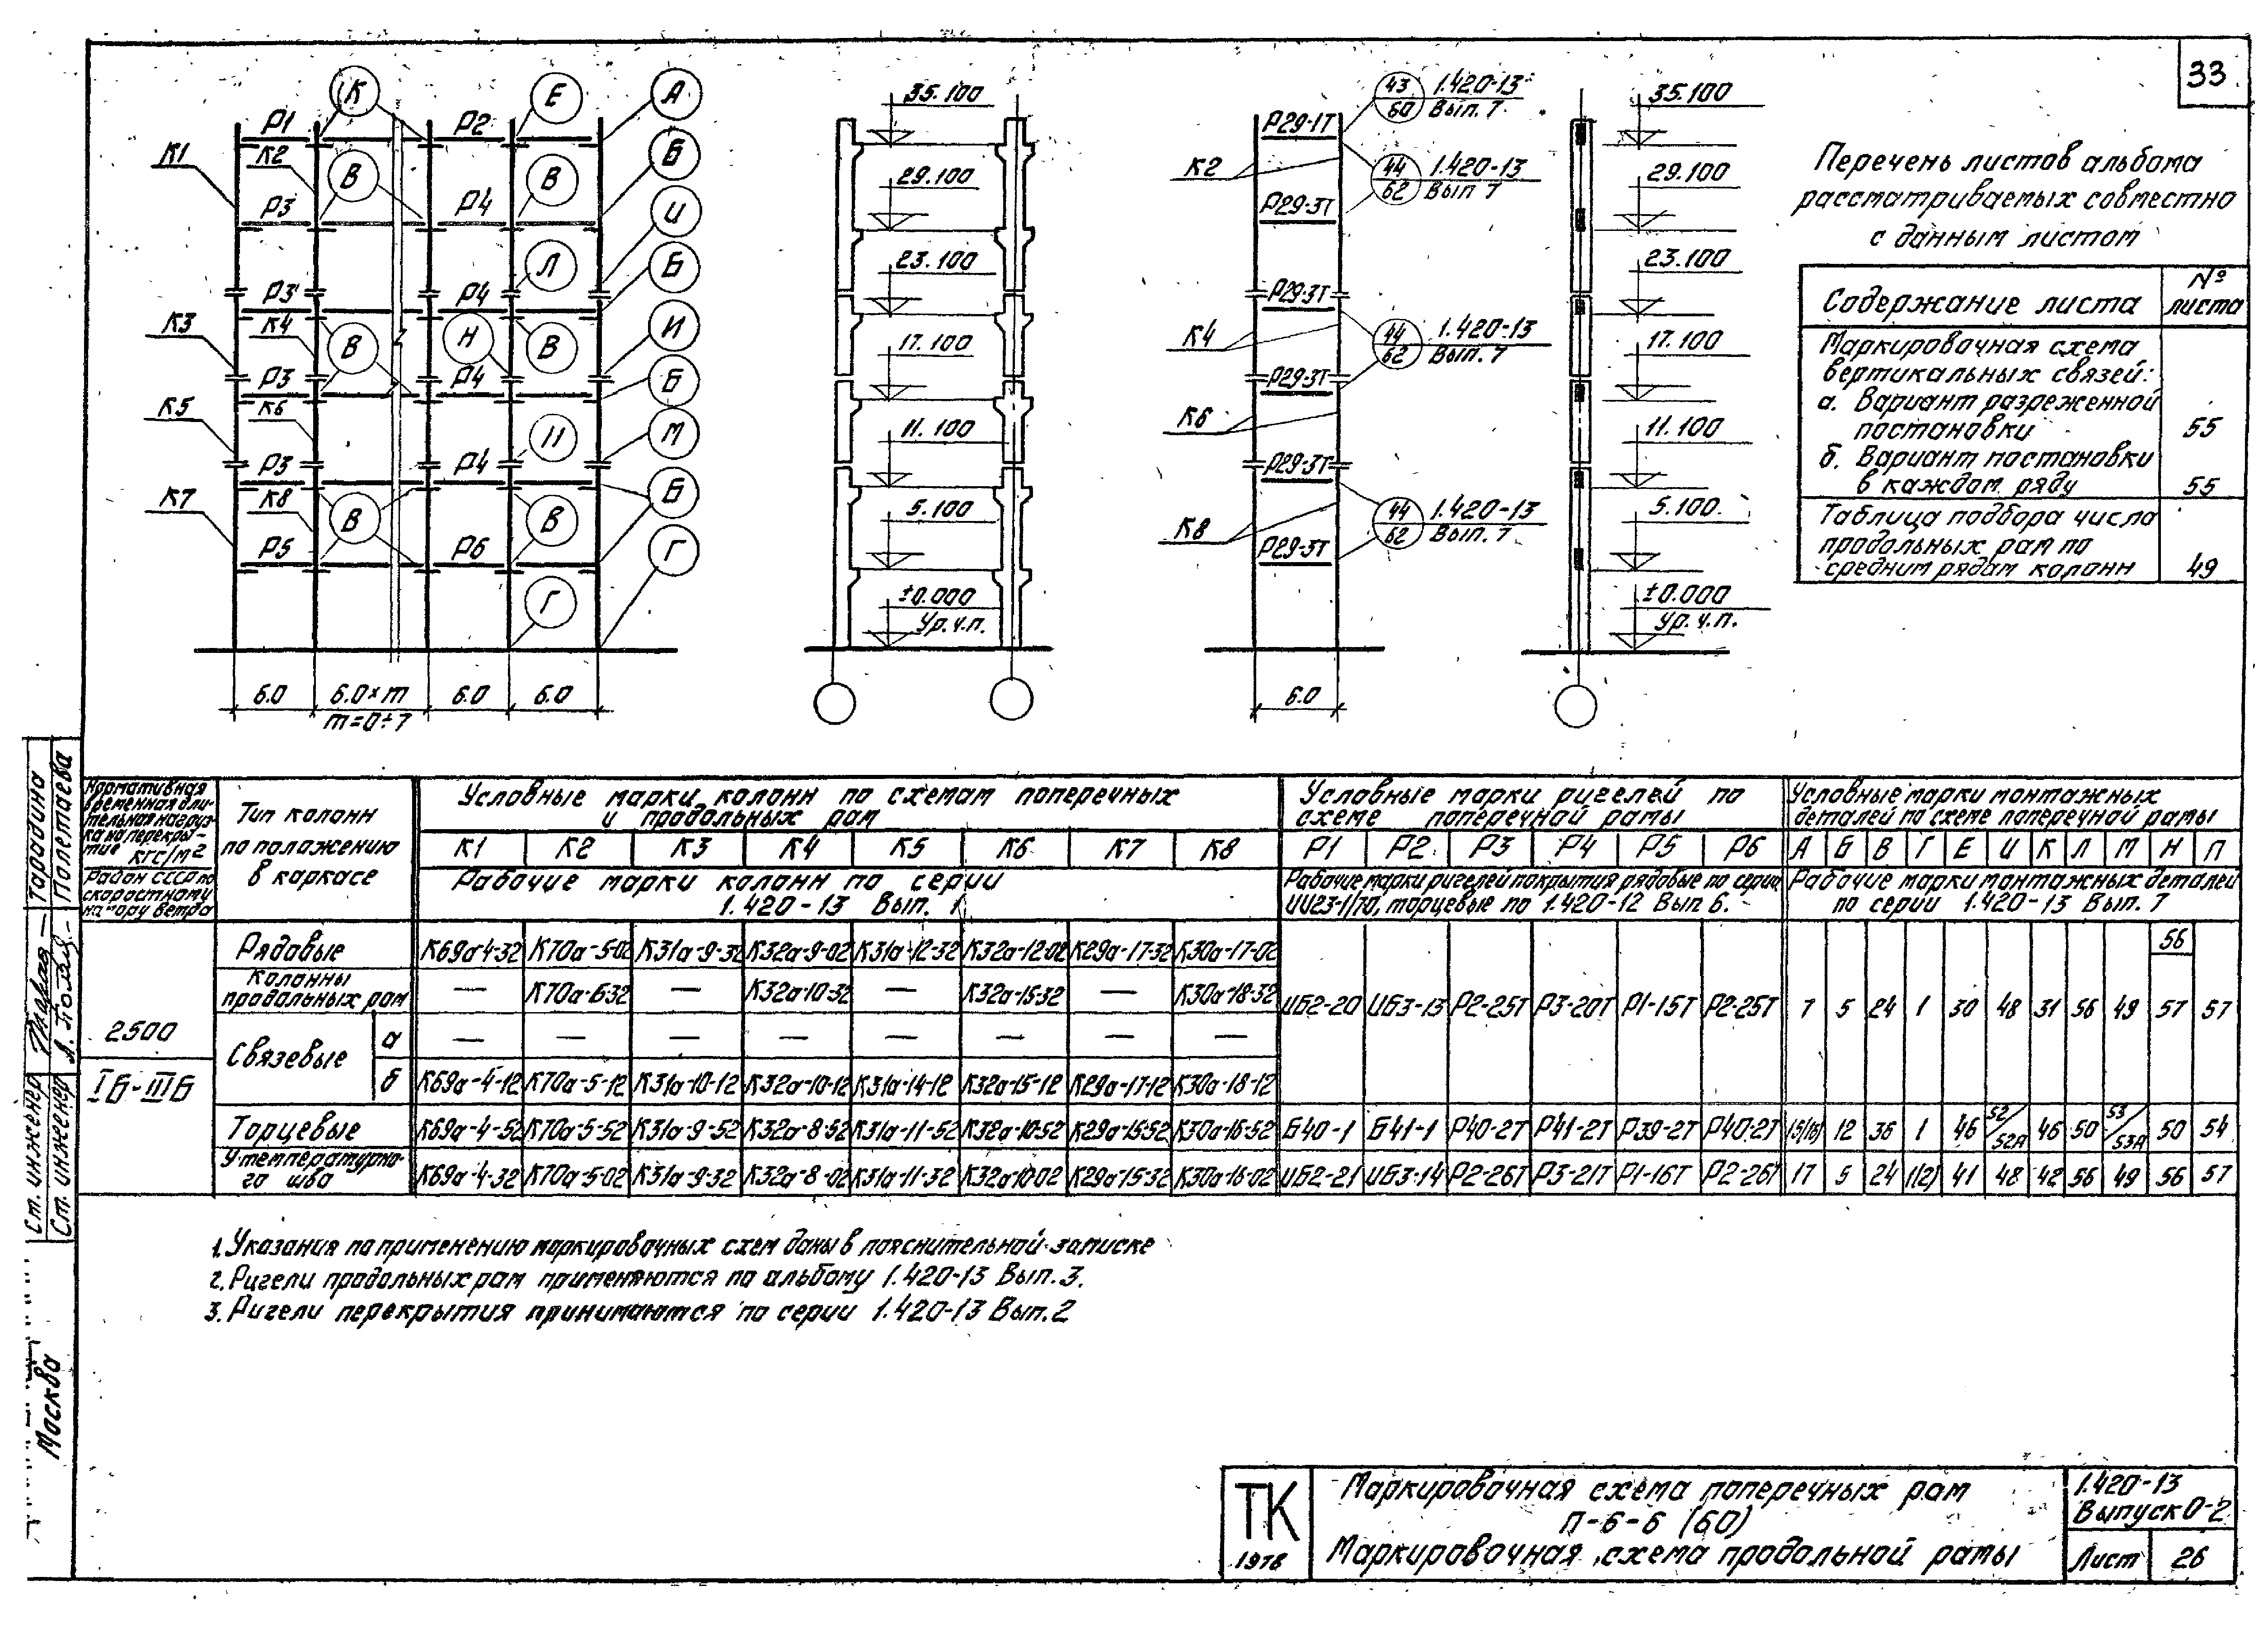 33
К Е А
Р1 Р2
К1 К2 Б
В В
Р3 Р4 И
Л Б
Р3 Р4
К3 К4 И
В Н В
Р3 Р4 Б
К5 К6
П М
Р3 Р4
К7 К8 Б
В В
Р5 Р6 Г
Г
6.0 6.0×m 6.0 6.0
m=0÷7
35.100
29.100
23.100
17.100
11.100
5.100
±0.000
Ур.ч.п.
Р29-1Т 43 1.420-13
60 Вып. 7
К2 44 1.420-13
62 Вып 7
Р29-3Т
Р29-3Т
К4 44 1.420-13
62 Вып. 7
Р29-3Т
К6
Р29-3Т
К8 44 1.420-13
62 Вып. 7
Р29-3Т
6.0
35.100
29.100
23.100
17.100
11.100
5.100
±0.000
Ур.ч.п.
Перечень листов альбома
рассматриваемых совместно
с данным листом
Содержание листа № листа
Маркировочная схема
вертикальных связей:
а. Вариант разреженной
постановки 55
б. Вариант постановки
в каждом ряду 55
Таблица подбора числа
продольных рам по
средним рядам колонн 49
Нормативная
временная дли-
тельная нагруз-
ка на перекры-
тие кгс/м2
Район СССР по
скоростному
напору ветра
Тип колонн
по положению
в каркасе
Условные марки колонн по схемам поперечных
и продольных рам
К1 К2 К3 К4 К5 К6 К7 К8
Рабочие марки колонн по серии
1.420-13 Вып. 1
Условные марки ригелей по
схеме поперечной рамы
Р1 Р2 Р3 Р4 Р5 Р6
Рабочие марки ригелей покрытия рядовые по серии
ИИ23-1/70, торцевые по 1.420-12 Вып 6.
Условные марки монтажных
деталей по схеме поперечной рамы
А Б В Г Е И К Л М Н П
Рабочие марки монтажных деталей
по серии 1.420-13 Вып. 7
2500
Iб-IIIб
Рядовые К69а-4-32 К70а-5-02 К31а-9-32 К32а-9-02 К31а-12-32 К32а-12-02 К29а-17-32 К30а-17-02
Колонны
продольных рам — К70а-6-32 — К32а-10-32 — К32а-15-32 — К30а-18-32
ИБ2-20 ИБ3-13 Р2-25Т Р3-20Т Р1-15Т Р2-25Т 7 5 24 1 30 48 31 56 49 56 57 57
Связевые а — — — — — — — —
б К69а-4-12 К70а-5-12 К31а-10-12 К32а-10-12 К31а-14-12 К32а-15-12 К29а-17-12 К30а-18-12
Торцевые К69а-4-52 К70а-5-52 К31а-9-52 К32а-8-52 К31а-11-52 К32а-10-52 К29а-15-52 К30а-16-52 Б40-1 Б41-1 Р40-2Т Р41-2Т Р39-2Т Р40-2Т 15(16) 12 36 1 46 52/52А 46 50 53/53А 50 54
У температурно-
го шва К69а-4-32 К70а-5-02 К31а-9-32 К32а-8-02 К31а-11-32 К32а-10-02 К29а-15-32 К30а-16-02 ИБ2-21 ИБ3-14 Р2-26Т Р3-21Т Р1-16Т Р2-26Т 17 5 24 1(2) 41 48 42 56 49 56 57
1. Указания по применению маркировочных схем даны в пояснительной записке
2. Ригели продольных рам применяются по альбому 1.420-13 Вып. 3.
3. Ригели перекрытия принимаются по серии 1.420-13 Вып. 2
Ст. инженер Тарадина
Ст. инженер Полетаева
Москва
ТК
1978
Маркировочная схема поперечных рам
П-6-6 (60)
Маркировочная схема продольной рамы
1.420-13
Выпуск 0-2
Лист 26